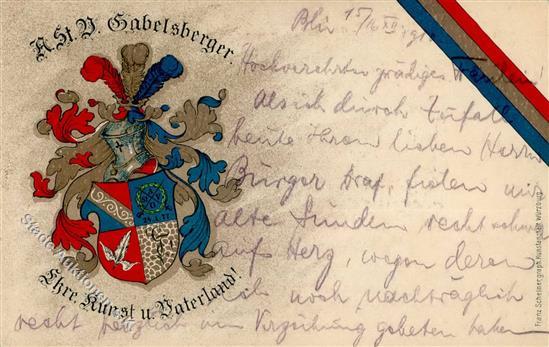 A. St. V. Gabelsberger.
24.1.77
Ehre Kunst u. Vaterland!
Hochverehrtes gnädiges Fräulein!
Als ich durch Zufall
heute Ihren lieben Herrn
Bürger traf, fielen mir
alte Sünden recht schwer
aufs Herz, wegen deren
ich noch nachträglich
recht herzlich um Verzeihung gebeten haben
Franz Scheiner, graph. Kunstanstalt Würzburg